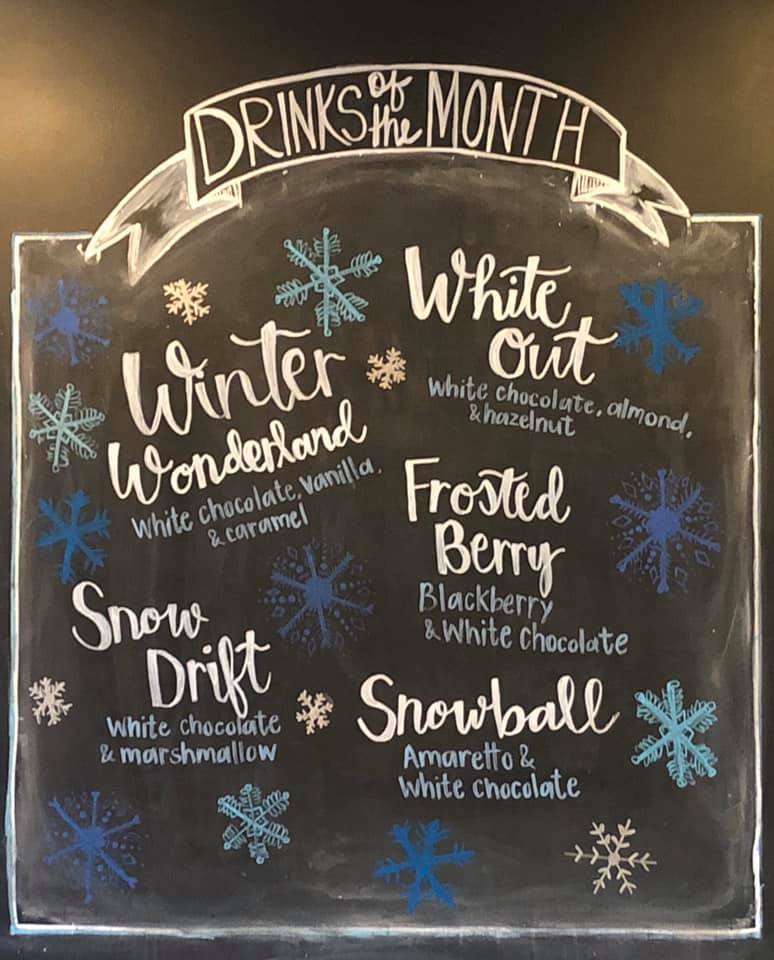 DRINKS of the MONTH
Winter
Wonderland
White chocolate, vanilla,
& caramel
Snow
Drift
White chocolate
& marshmallow
White
Out
White chocolate, almond,
& hazelnut
Frosted
Berry
Blackberry
& White chocolate
Snowball
Amaretto &
White chocolate